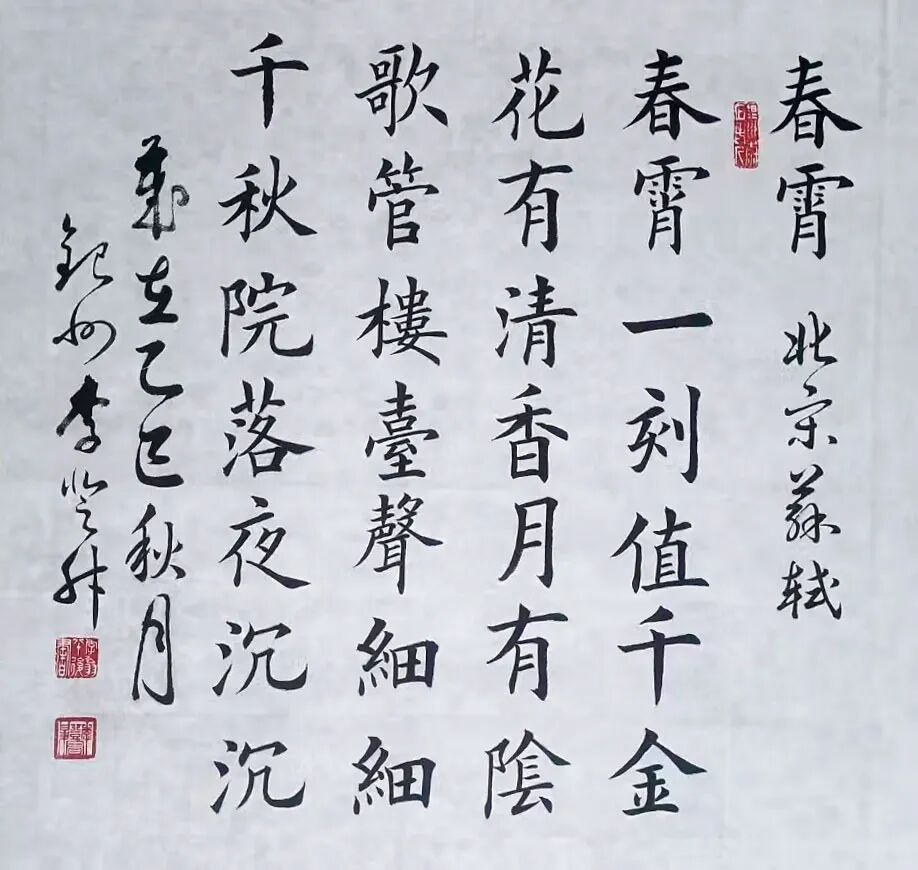 春霄 北宋蘇軾
春霄一刻值千金
花有清香月有陰
歌管樓臺聲細細
千秋院落夜沉沉
歲在乙巳秋月
州李登